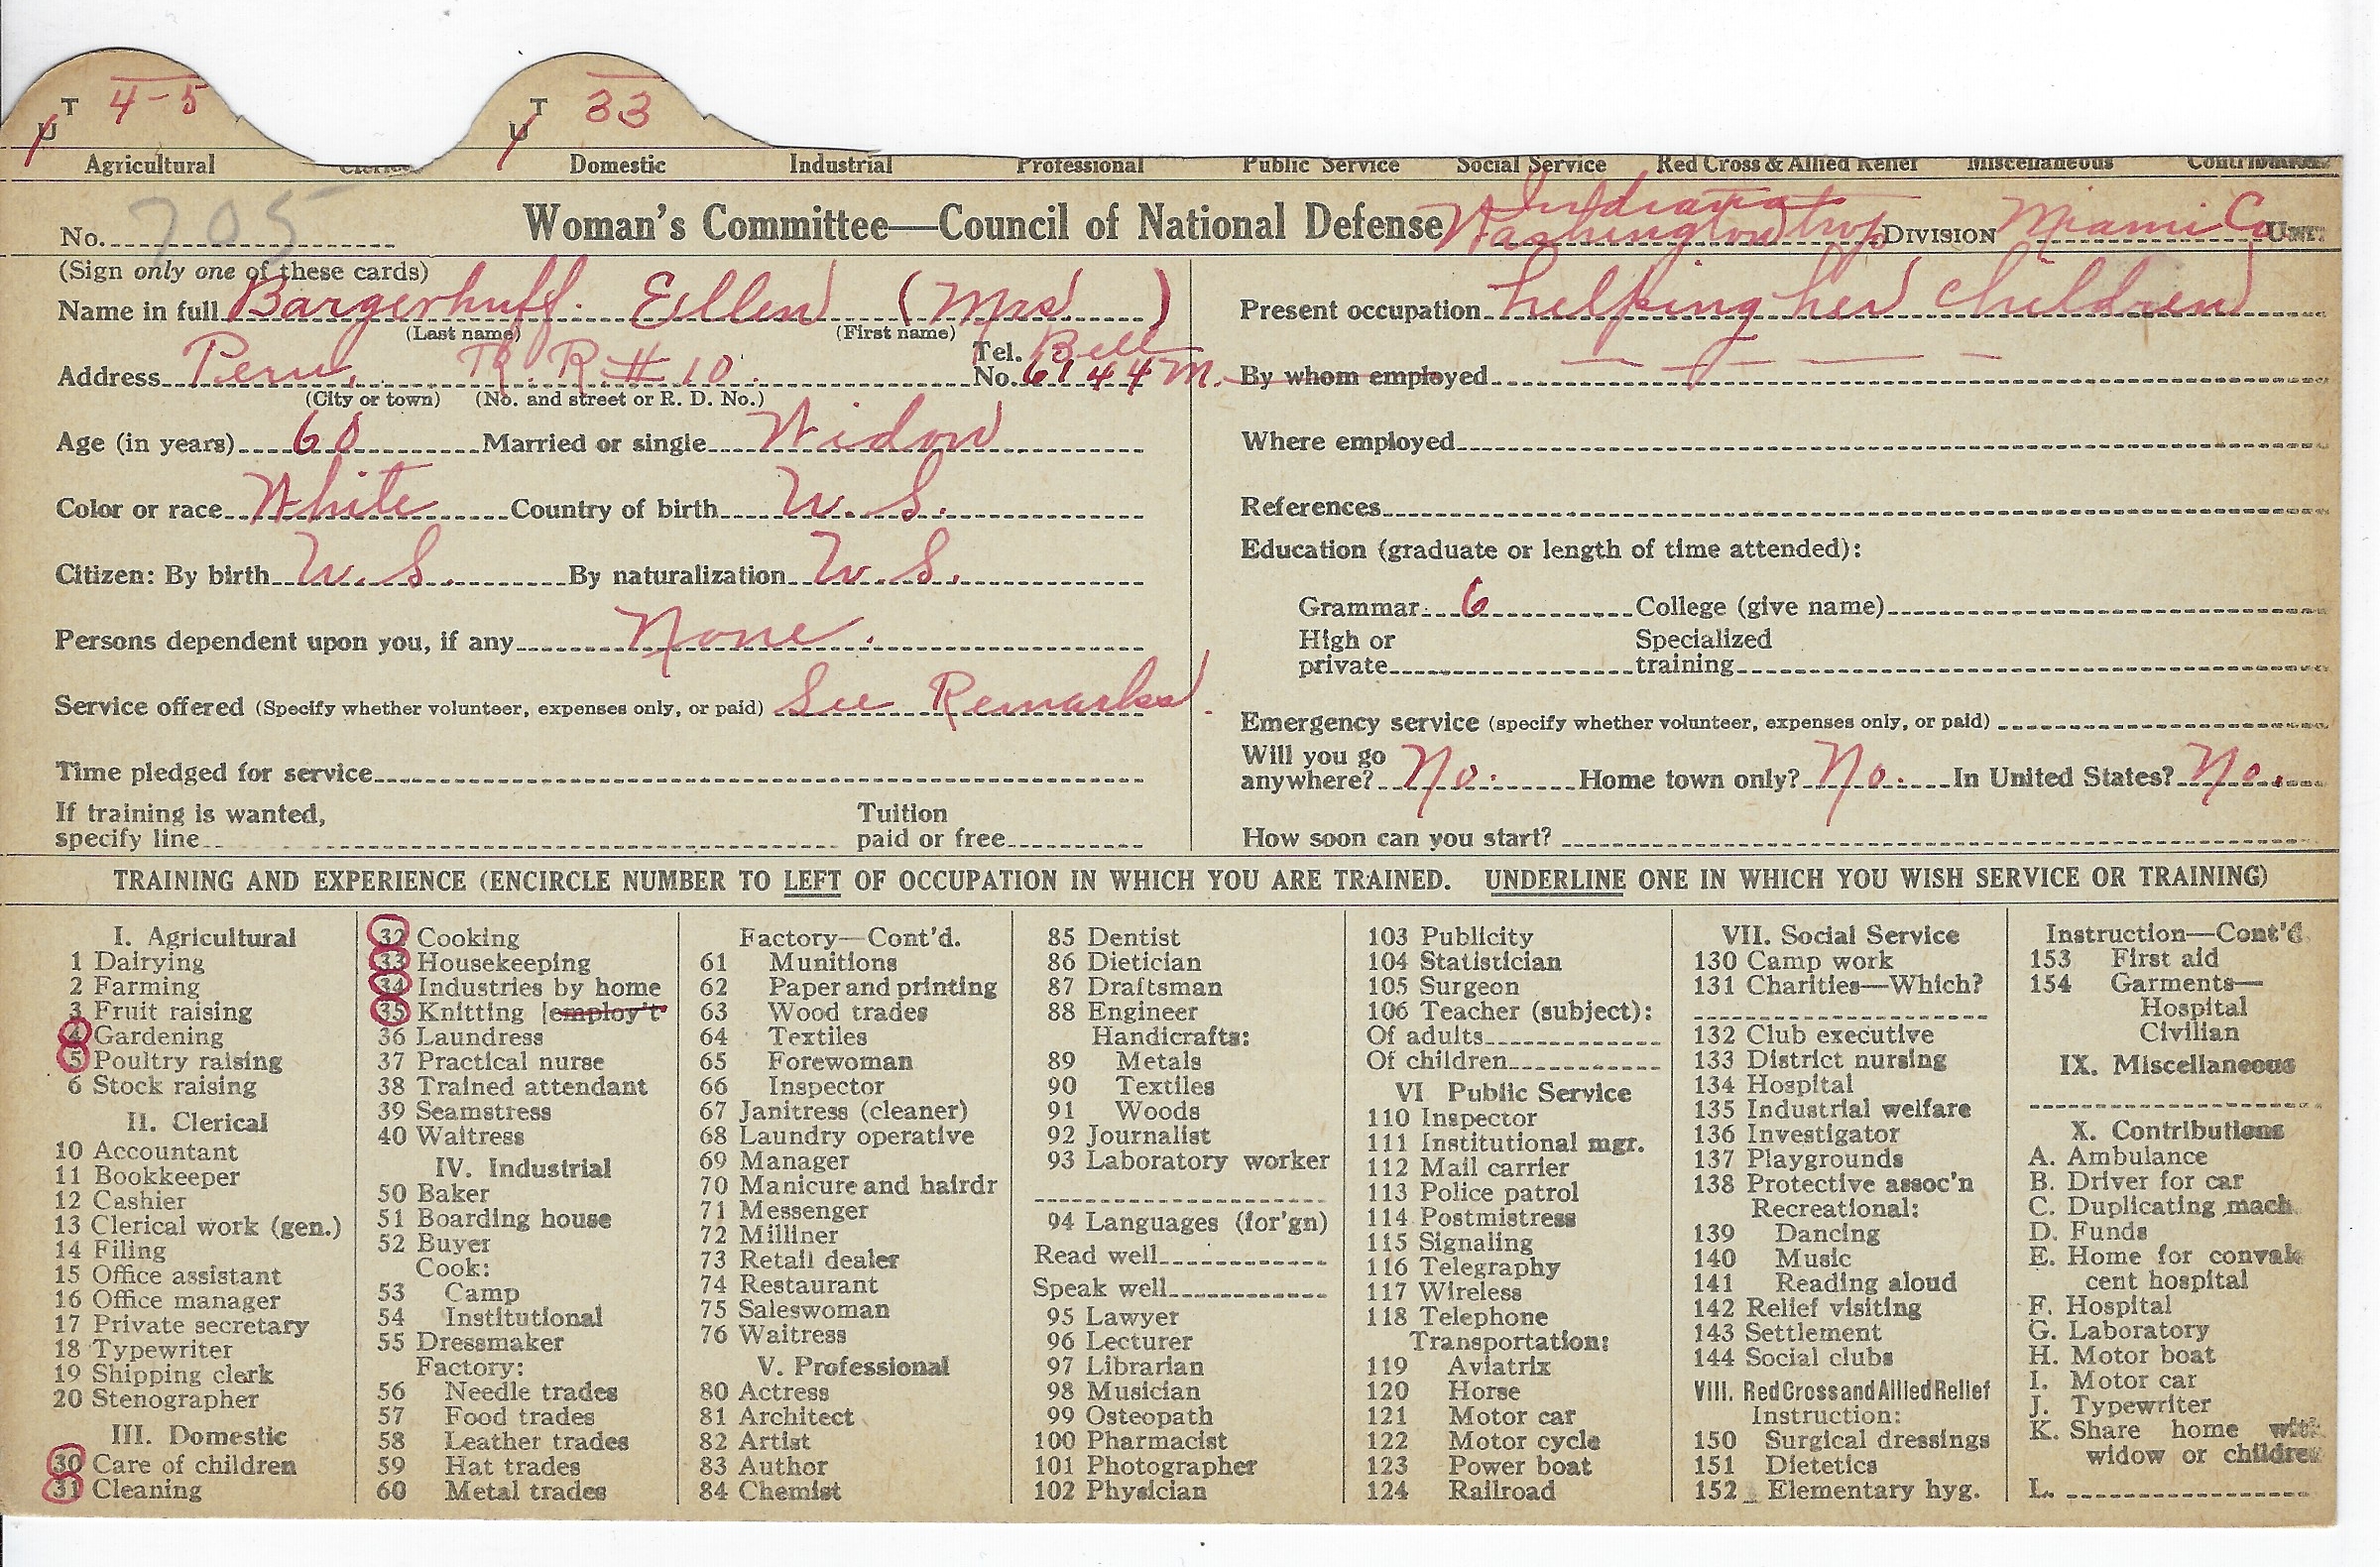 T 4-5 T 33
U U
Agricultural Clerical Domestic Industrial Professional Public Service Social Service Red Cross & Allied Relief Miscellaneous Contributions
Indiana
No. 705 Woman's Committee—Council of National Defense Washington twp DIVISION Miami Co UNIT
(Sign only one of these cards)
Name in full Bargerhuff. Ellen (Mrs)
(Last name) (First name)
Address Peru, R. R # 10. Tel. No. Bell 6144M.
(City or town) (No. and street or R. D. No.)
Age (in years) 60 Married or single Widow
Color or race White Country of birth U. S.
Citizen: By birth U. S. By naturalization U. S.
Persons dependent upon you, if any None.
Service offered (Specify whether volunteer, expenses only, or paid) See Remarks.
Time pledged for service
If training is wanted, specify line Tuition paid or free
Present occupation helping her children
By whom employed
Where employed
References
Education (graduate or length of time attended):
Grammar 6 College (give name)
High or private Specialized training
Emergency service (specify whether volunteer, expenses only, or paid)
Will you go anywhere? No. Home town only? No. In United States? No.
How soon can you start?
TRAINING AND EXPERIENCE (ENCIRCLE NUMBER TO LEFT OF OCCUPATION IN WHICH YOU ARE TRAINED. UNDERLINE ONE IN WHICH YOU WISH SERVICE OR TRAINING)
I. Agricultural
1 Dairying
2 Farming
3 Fruit raising
4 Gardening
5 Poultry raising
6 Stock raising
II. Clerical
10 Accountant
11 Bookkeeper
12 Cashier
13 Clerical work (gen.)
14 Filing
15 Office assistant
16 Office manager
17 Private secretary
18 Typewriter
19 Shipping clerk
20 Stenographer
III. Domestic
30 Care of children
31 Cleaning
32 Cooking
33 Housekeeping
34 Industries by home
35 Knitting [employ't
36 Laundress
37 Practical nurse
38 Trained attendant
39 Seamstress
40 Waitress
IV. Industrial
50 Baker
51 Boarding house
52 Buyer
Cook:
53 Camp
54 Institutional
55 Dressmaker
Factory:
56 Needle trades
57 Food trades
58 Leather trades
59 Hat trades
60 Metal trades
Factory—Cont'd.
61 Munitions
62 Paper and printing
63 Wood trades
64 Textiles
65 Forewoman
66 Inspector
67 Janitress (cleaner)
68 Laundry operative
69 Manager
70 Manicure and hairdr
71 Messenger
72 Milliner
73 Retail dealer
74 Restaurant
75 Saleswoman
76 Waitress
V. Professional
80 Actress
81 Architect
82 Artist
83 Author
84 Chemist
85 Dentist
86 Dietician
87 Draftsman
88 Engineer
Handicrafts:
89 Metals
90 Textiles
91 Woods
92 Journalist
93 Laboratory worker
94 Languages (for'gn)
Read well
Speak well
95 Lawyer
96 Lecturer
97 Librarian
98 Musician
99 Osteopath
100 Pharmacist
101 Photographer
102 Physician
103 Publicity
104 Statistician
105 Surgeon
106 Teacher (subject):
Of adults
Of children
VI Public Service
110 Inspector
111 Institutional mgr.
112 Mail carrier
113 Police patrol
114 Postmistress
115 Signaling
116 Telegraphy
117 Wireless
118 Telephone
Transportation:
119 Aviatrix
120 Horse
121 Motor car
122 Motor cycle
123 Power boat
124 Railroad
VII. Social Service
130 Camp work
131 Charities—Which?
132 Club executive
133 District nursing
134 Hospital
135 Industrial welfare
136 Investigator
137 Playgrounds
138 Protective assoc'n
Recreational:
139 Dancing
140 Music
141 Reading aloud
142 Relief visiting
143 Settlement
144 Social clubs
VIII. Red Cross and Allied Relief
Instruction:
150 Surgical dressings
151 Dietetics
152 Elementary hyg.
Instruction—Cont'd
153 First aid
154 Garments—
Hospital
Civilian
IX. Miscellaneous
X. Contributions
A. Ambulance
B. Driver for car
C. Duplicating mach.
D. Funds
E. Home for convales
cent hospital
F. Hospital
G. Laboratory
H. Motor boat
I. Motor car
J. Typewriter
K. Share home with
widow or children
L.